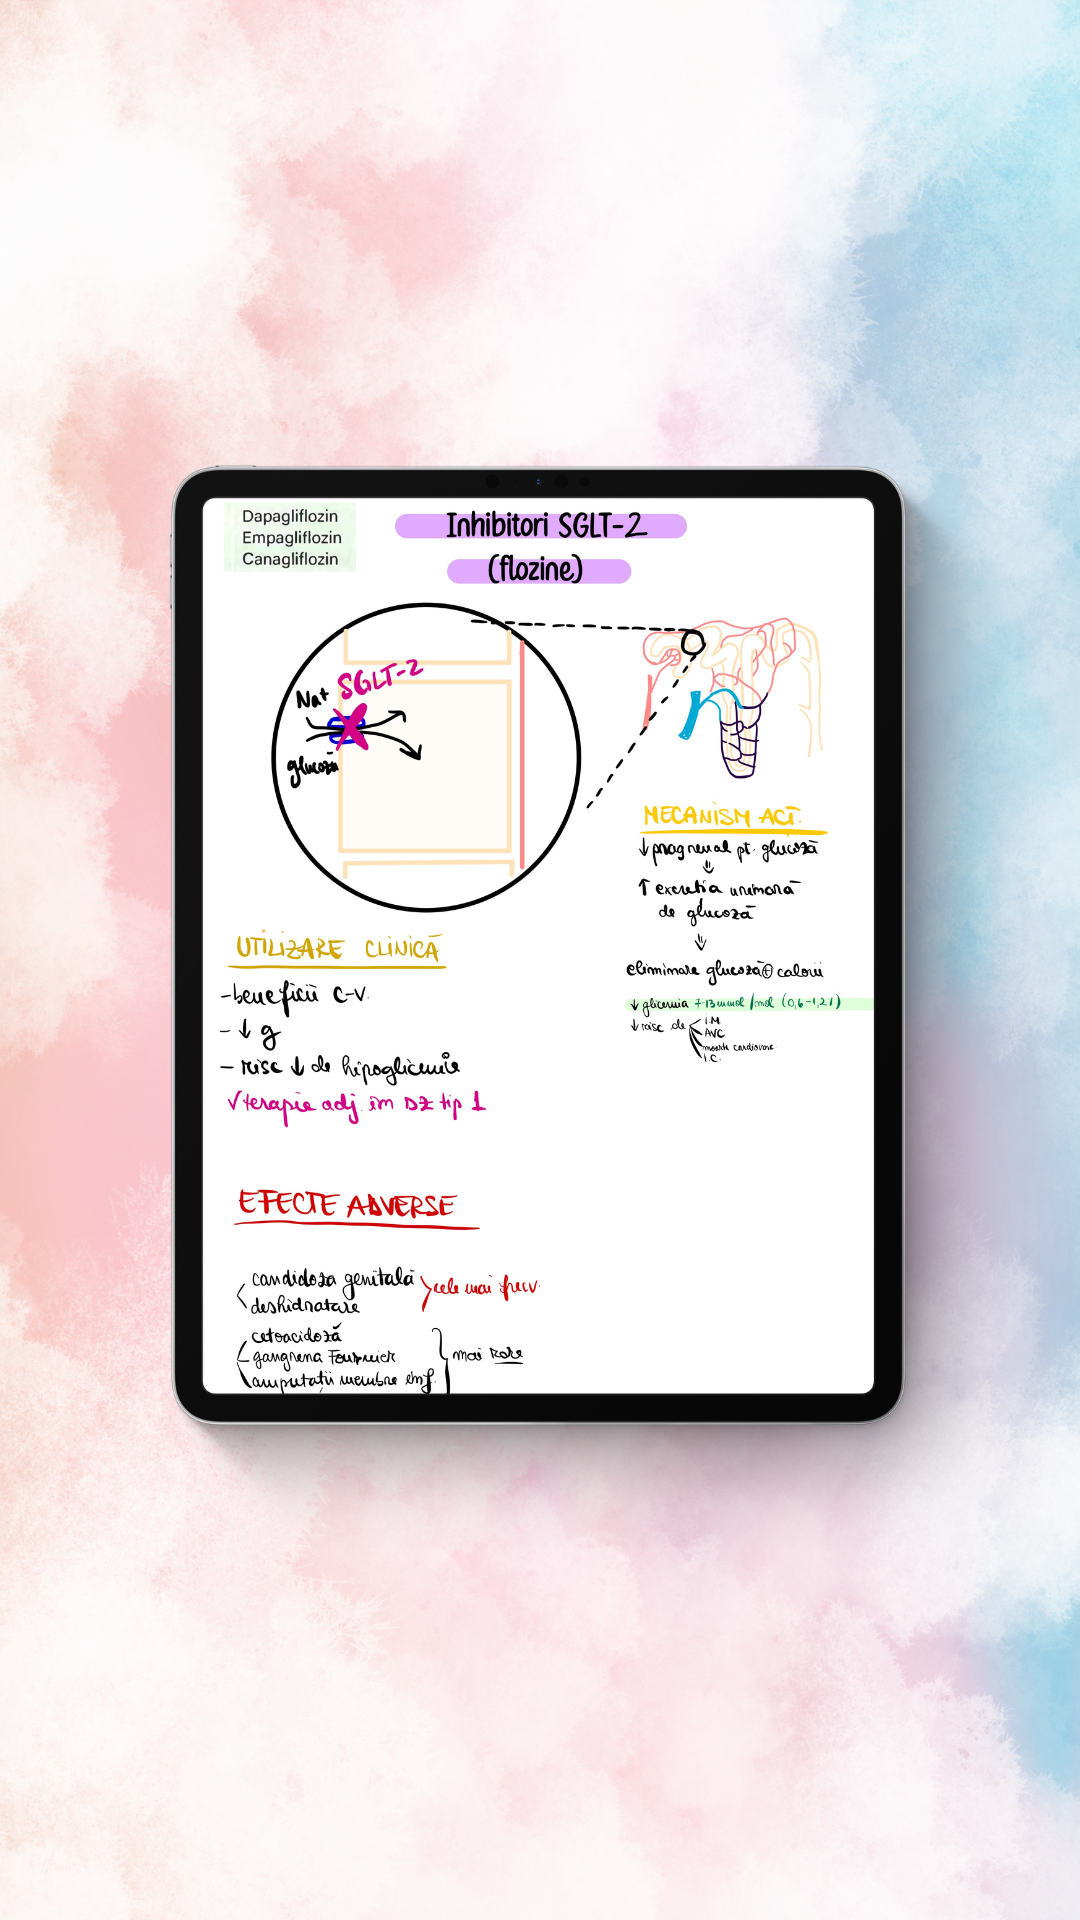 Dapagliflozin
Empagliflozin
Canagliflozin
Inhibitori SGLT-2
(flozine)
Na+
SGLT-2
glucoză
MECANISM ACT.
↓ prag renal pt. glucoză
⇓
↑ excreția urinară
de glucoză
⇓
eliminare glucoză ⊕ calorii
↓ glicemia 7-13 mmol/mol (0,6-1,2%)
↓ risc de
I.M
AVC
moarte cardiovasc
I.C.
UTILIZARE CLINICĂ
- beneficii C-V.
- ↓ g
- risc ↓ de hipoglicemie
√ terapie adj. în DZ tip 1
EFECTE ADVERSE
candidoza genitală
deshidratare
cele mai frecv.
cetoacidoză
gangrena Fournier
amputații membre inf.
mai rare